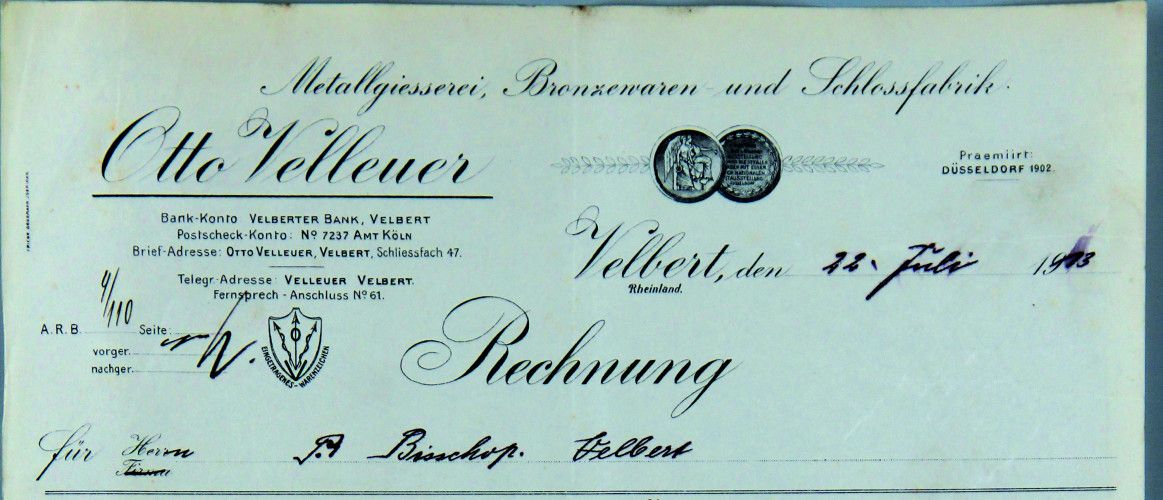 Metallgiesserei, Bronzewaren- und Schlossfabrik.
Otto Velleuer
Praemiirt:
DÜSSELDORF 1902.
Bank-Konto VELBERTER BANK, VELBERT
Postscheck-Konto: No 7237 AMT KÖLN
Brief-Adresse: OTTO VELLEUER, VELBERT, Schliessfach 47.
Telegr.-Adresse: VELLEUER VELBERT.
Fernsprech-Anschluss No 61.
Velbert, den 22. Juli 1913
Rheinland.
A.R.B. 4/110 Seite:
vorger.
nachger.
EINGETRAGENES-WARENZEICHEN
Rechnung
für Herrn Bisschop. Velbert
Firma